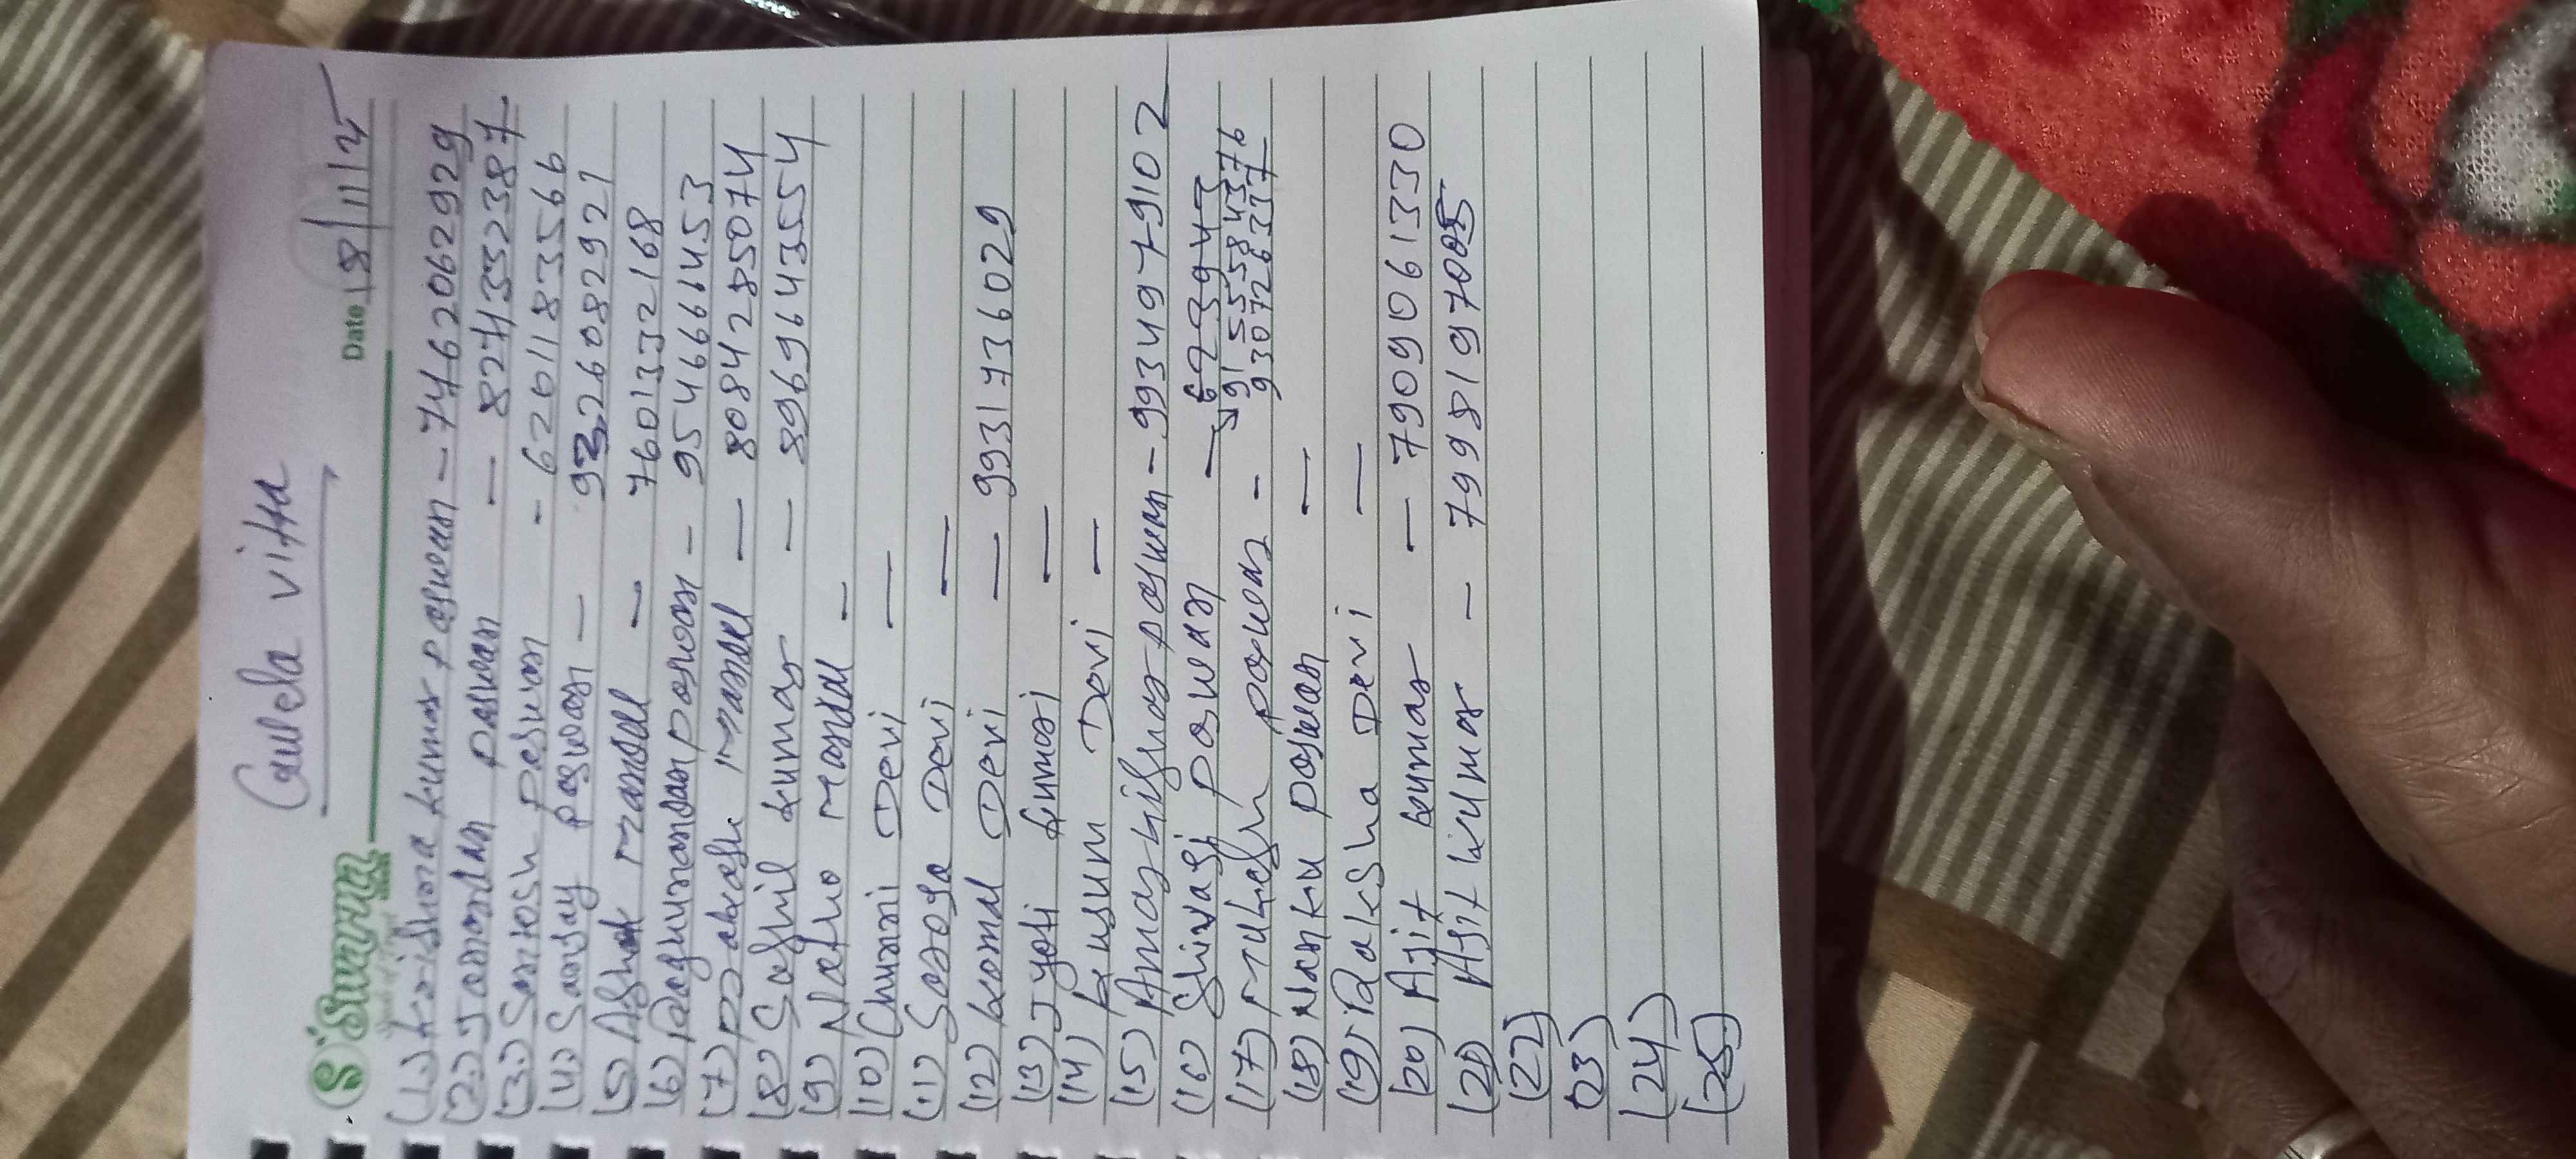 Gauela vitta
S Sunrise
Date 18/11/25
(1.) krishna kumar paswan - 7462062929
(2.) Ramanandan paswan - 8274352387
(3.) Santosh paswan - 6201183566
(4) Sanjay paswan - 9326082921
(5) Ashok mandal - 7601332168
(6) Raghunandan paswan - 9546661453
(7) prakash mandal - 8084285074
(8) Sashil kumar - 8969643554
(9) Natho mandal -
(10) Chunni Devi -
(11) Saroja Devi -
(12) komal Devi - 9931736029
(13) Jyoti kumari -
(14) kusum Devi -
(15) Amarkishor paswan - 9934979102
(16) Shivaji paswan -
(17) mukesh paswan - 9155584376
9307263777
(18) Nanku paswan -
(19) Raksha Devi -
(20) Ajit kumar - 7909061330
(21) Ajit kumar - 7998197005
(22)
(23)
(24)
(25)